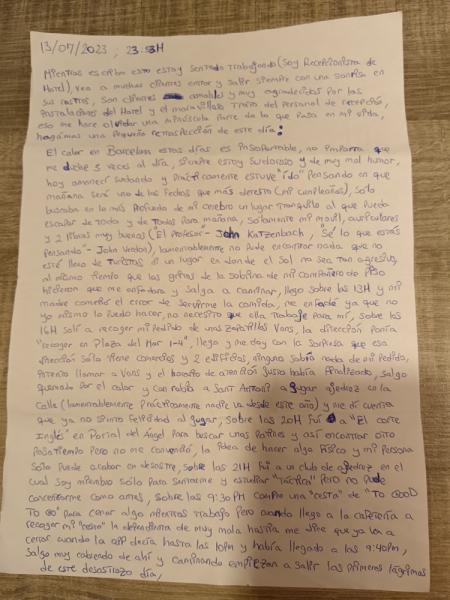 13/07/2023, 23:53H
Mientras escribo esto estoy sentado trabajando (soy Recepcionista de
Hotel), veo a muchos clientes entrar y salir siempre con una sonrisa en
sus rostros, son clientes amables y muy agradecidos por las
instalaciones del Hotel y el maravilloso trato del personal de recepción,
eso me hace olvidar una minúscula parte de lo que pasa en mi vida,
hagamos una pequeña retrospección de este día:
El calor en Barcelona estos días es insoportable, no importa que
me duche 3 veces al día, siempre estoy sudoroso y de muy mal humor,
hoy amanecí sudando y prácticamente estuve "ido" pensando en que
mañana será uno de las fechas que más detesto (mi cumpleaños), solo
buscaba en lo más profundo de mi cerebro un lugar tranquilo al que pueda
escapar de todo y de todos para mañana, solamente mi movil, auriculares
y 2 libros muy buenos ("El profesor" - John Katzenbach, "Sé lo que estás
pensando" - John Verdon), lamentablemente no pude encontrar nada que no
esté lleno de turistas o un lugar en donde el sol no sea tan agresivo,
al mismo tiempo que los gritos de la sobrina de mi compañero de piso
hicieron que me enfadara y salga a caminar, llego sobre las 13H y mi
madre cometió el error de servirme la comida, me enfadé ya que yo
mismo lo puedo hacer, no necesito que ella trabaje para mí, sobre las
16H salí a recoger mi pedido de unas zapatillas Vans, la dirección ponía
"recoger en Plaza del Mar 1-4", llego y me doy con la sorpresa que esa
dirección solo tiene comercios y 2 edificios, ninguno sabía nada de mi pedido,
intento llamar a Vans y el horario de atención justo había finalizado, salgo
quemado por el calor y con rabia a Sant Antoni a jugar ajedrez en la
calle (lamentablemente prácticamente nadie va desde este año) y me di cuenta
que ya no siento felicidad al jugar, sobre las 20H fuí a "El corte
Inglés" en Portal del Ángel para buscar unos patines y así encontrar otro
pasatiempo pero no me convenció, la idea de hacer algo físico y mi persona
solo puede acabar en desastre, sobre las 21H fui a un club de ajedrez en el
cual soy miembro sólo para sentarme y estudiar "táctica" pero no pude
concentrarme como antes, sobre las 9:30PM compré una "cesta" de "TO GOOD
TO GO" para cenar algo mientras trabajo pero cuando llego a la cafetería a
recoger mi "cesta" la dependienta de muy mala hostia me dice que ya va a
cerrar cuando la app decía hasta las 10PM y había llegado a las 9:40PM,
salgo muy cabreado de ahí y caminando empiezan a salir las primeras lágrimas
de este desastrozo día,